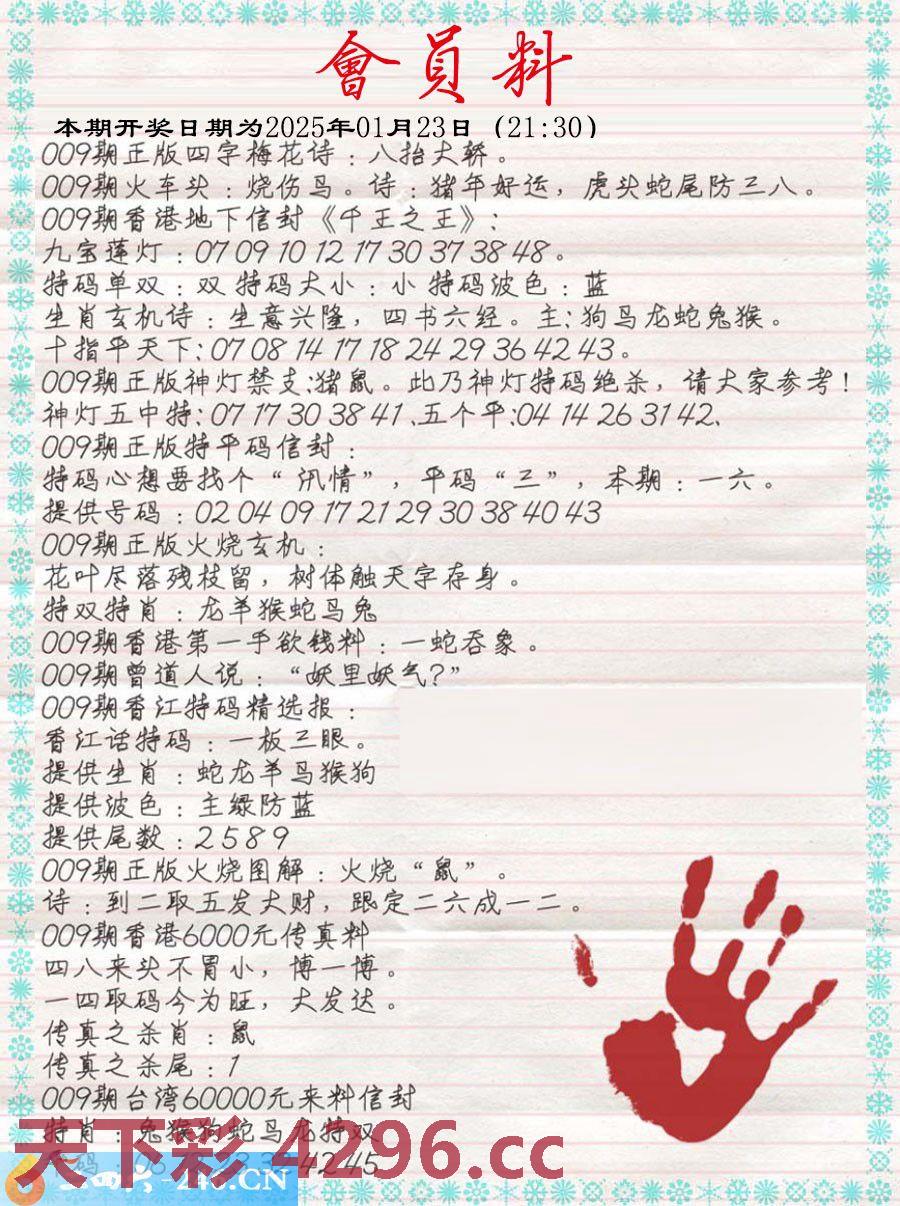 會員料
本期开奖日期为2025年01月23日（21:30）
009期正版四字梅花诗：八抬大轿。
009期火车头：烧伤鸟。诗：猪年好运，虎头蛇尾防三八。
009期香港地下信封《千王之王》:
九宝莲灯：07 09 10 12 17 30 37 38 48。
特码单双：双 特码大小：小 特码波色：蓝
生肖玄机诗：生意兴隆，四书六经。主:狗鸟龙蛇兔猴。
十指平天下:07 08 14 17 18 24 29 36 42 43。
009期正版神灯禁支:猪鼠。此乃神灯特码绝杀，请大家参考!
神灯五中特:07 17 30 38 41、五个平:04 14 26 31 42、
009期正版特平码信封：
特码心想要找个“汛情”，平码“三”，本期：一六。
提供号码：02 04 09 17 21 29 30 38 40 43
009期正版火烧玄机：
花叶尽落残枝留，树体触天字存身。
特双特肖：龙羊猴蛇鸟兔
009期香港第一手欲钱料：一蛇吞象。
009期曾道人说：“妖里妖气?”
009期香江特码精选报：
香江话特码：一板三眼。
提供生肖：蛇龙羊鸟猴狗
提供波色：主绿防蓝
提供尾数：2 5 8 9
009期正版火烧图解：火烧“鼠”。
诗：到二取五发大财，跟定二六成一二。
009期香港6000元传真料
四八来头不冒小，博一博。
一四取码今为旺，大发达。
传真之杀肖：鼠
传真之杀尾：1
009期台湾60000元来料信封
特肖：兔猴狗蛇鸟龙特双
天下彩 4296.cc
42 45
246.CN